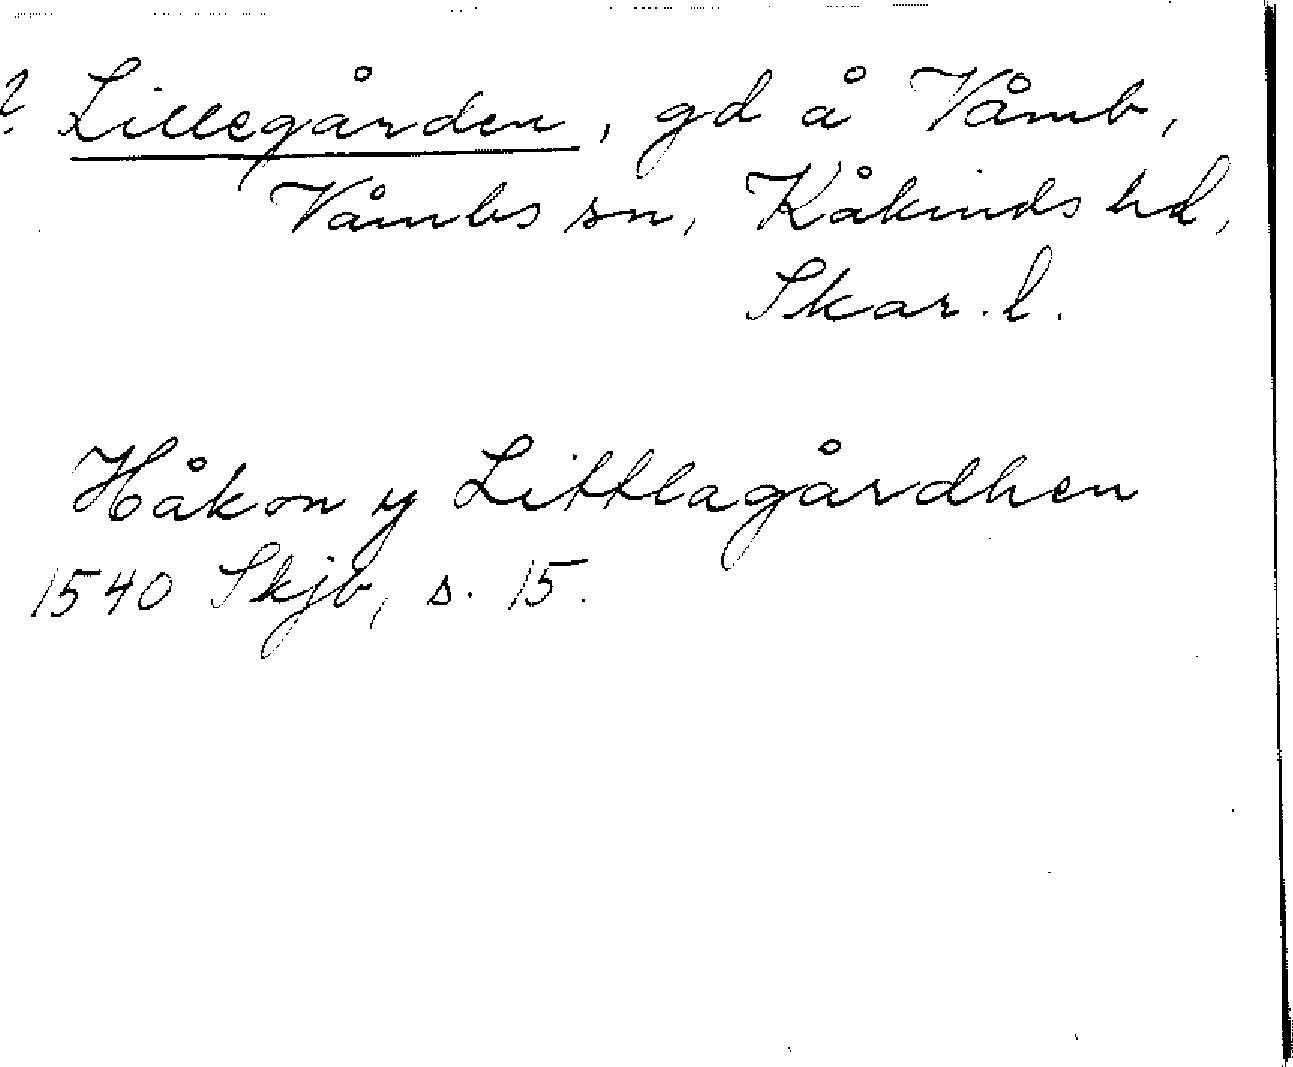 ? Lillegården, gd å Våmb,
Våmbs sn, Kåkinds hd,
Skar. l.
Håkon y Littlagårdhen
1540 Skjb, s. 15.